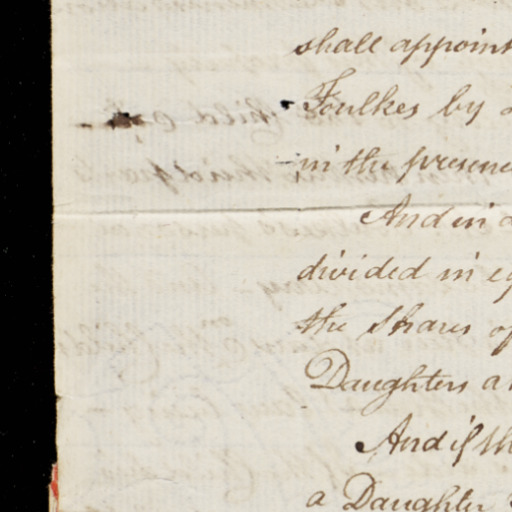 shall appoint
Foulkes by
in the presence
And in
divided in
the Shares of
Daughters
And if th
a Daughter